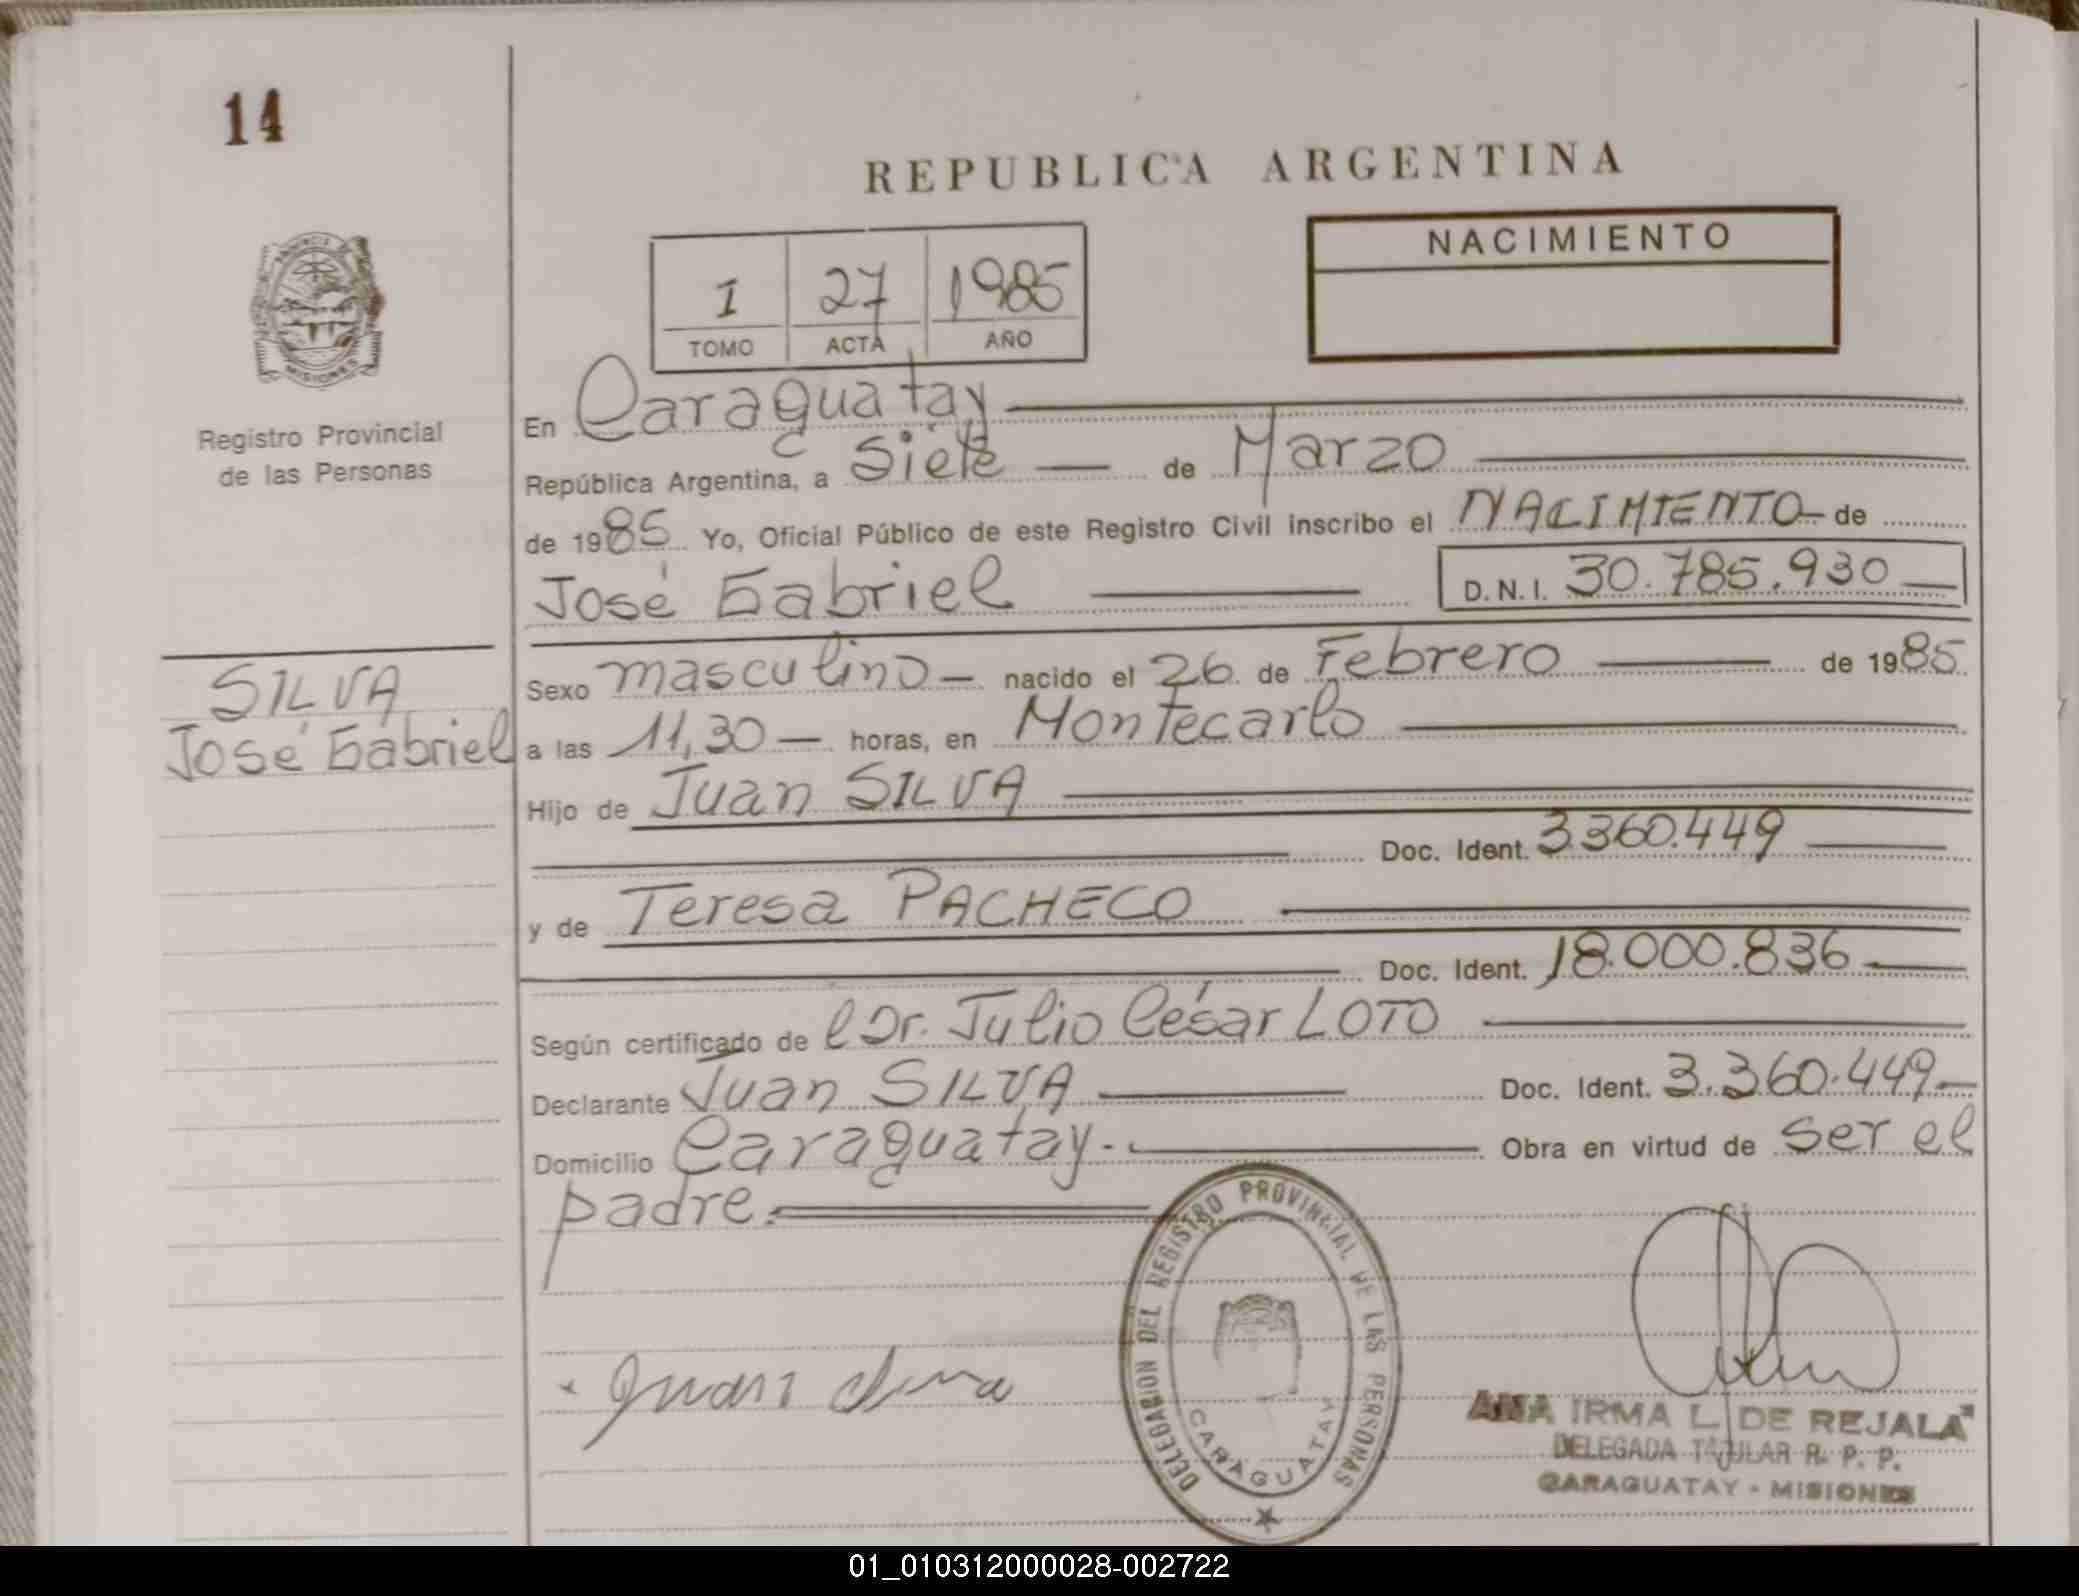 14
REPUBLICA ARGENTINA
NACIMIENTO
1 27 1985
TOMO ACTA AÑO
PROVINCIA DE
MISIONES
Registro Provincial
de las Personas
En Caraguatay
República Argentina, a Siete de Marzo
de 1985 Yo, Oficial Público de este Registro Civil inscribo el NACIMIENTO de
José Gabriel D.N.I. 30.785.930
SILVA
José Gabriel
Sexo masculino nacido el 26 de Febrero de 1985
a las 11,30 horas, en Montecarlo
Hijo de Juan SILVA
Doc. Ident. 3.360.449
y de Teresa PACHECO
Doc. Ident. 18.000.836
Según certificado de l Dr. Julio César LOTO
Declarante Juan SILVA Doc. Ident. 3.360.449
Domicilio Caraguatay. Obra en virtud de ser el
padre.
DELEGACION DEL REGISTRO PROVINCIAL DE LAS PERSONAS
CARAGUATAY
Juan Silva
ANA IRMA L. DE REJALA
DELEGADA TITULAR R. P. P.
CARAGUATAY - MISIONES
01_010312000028-002722